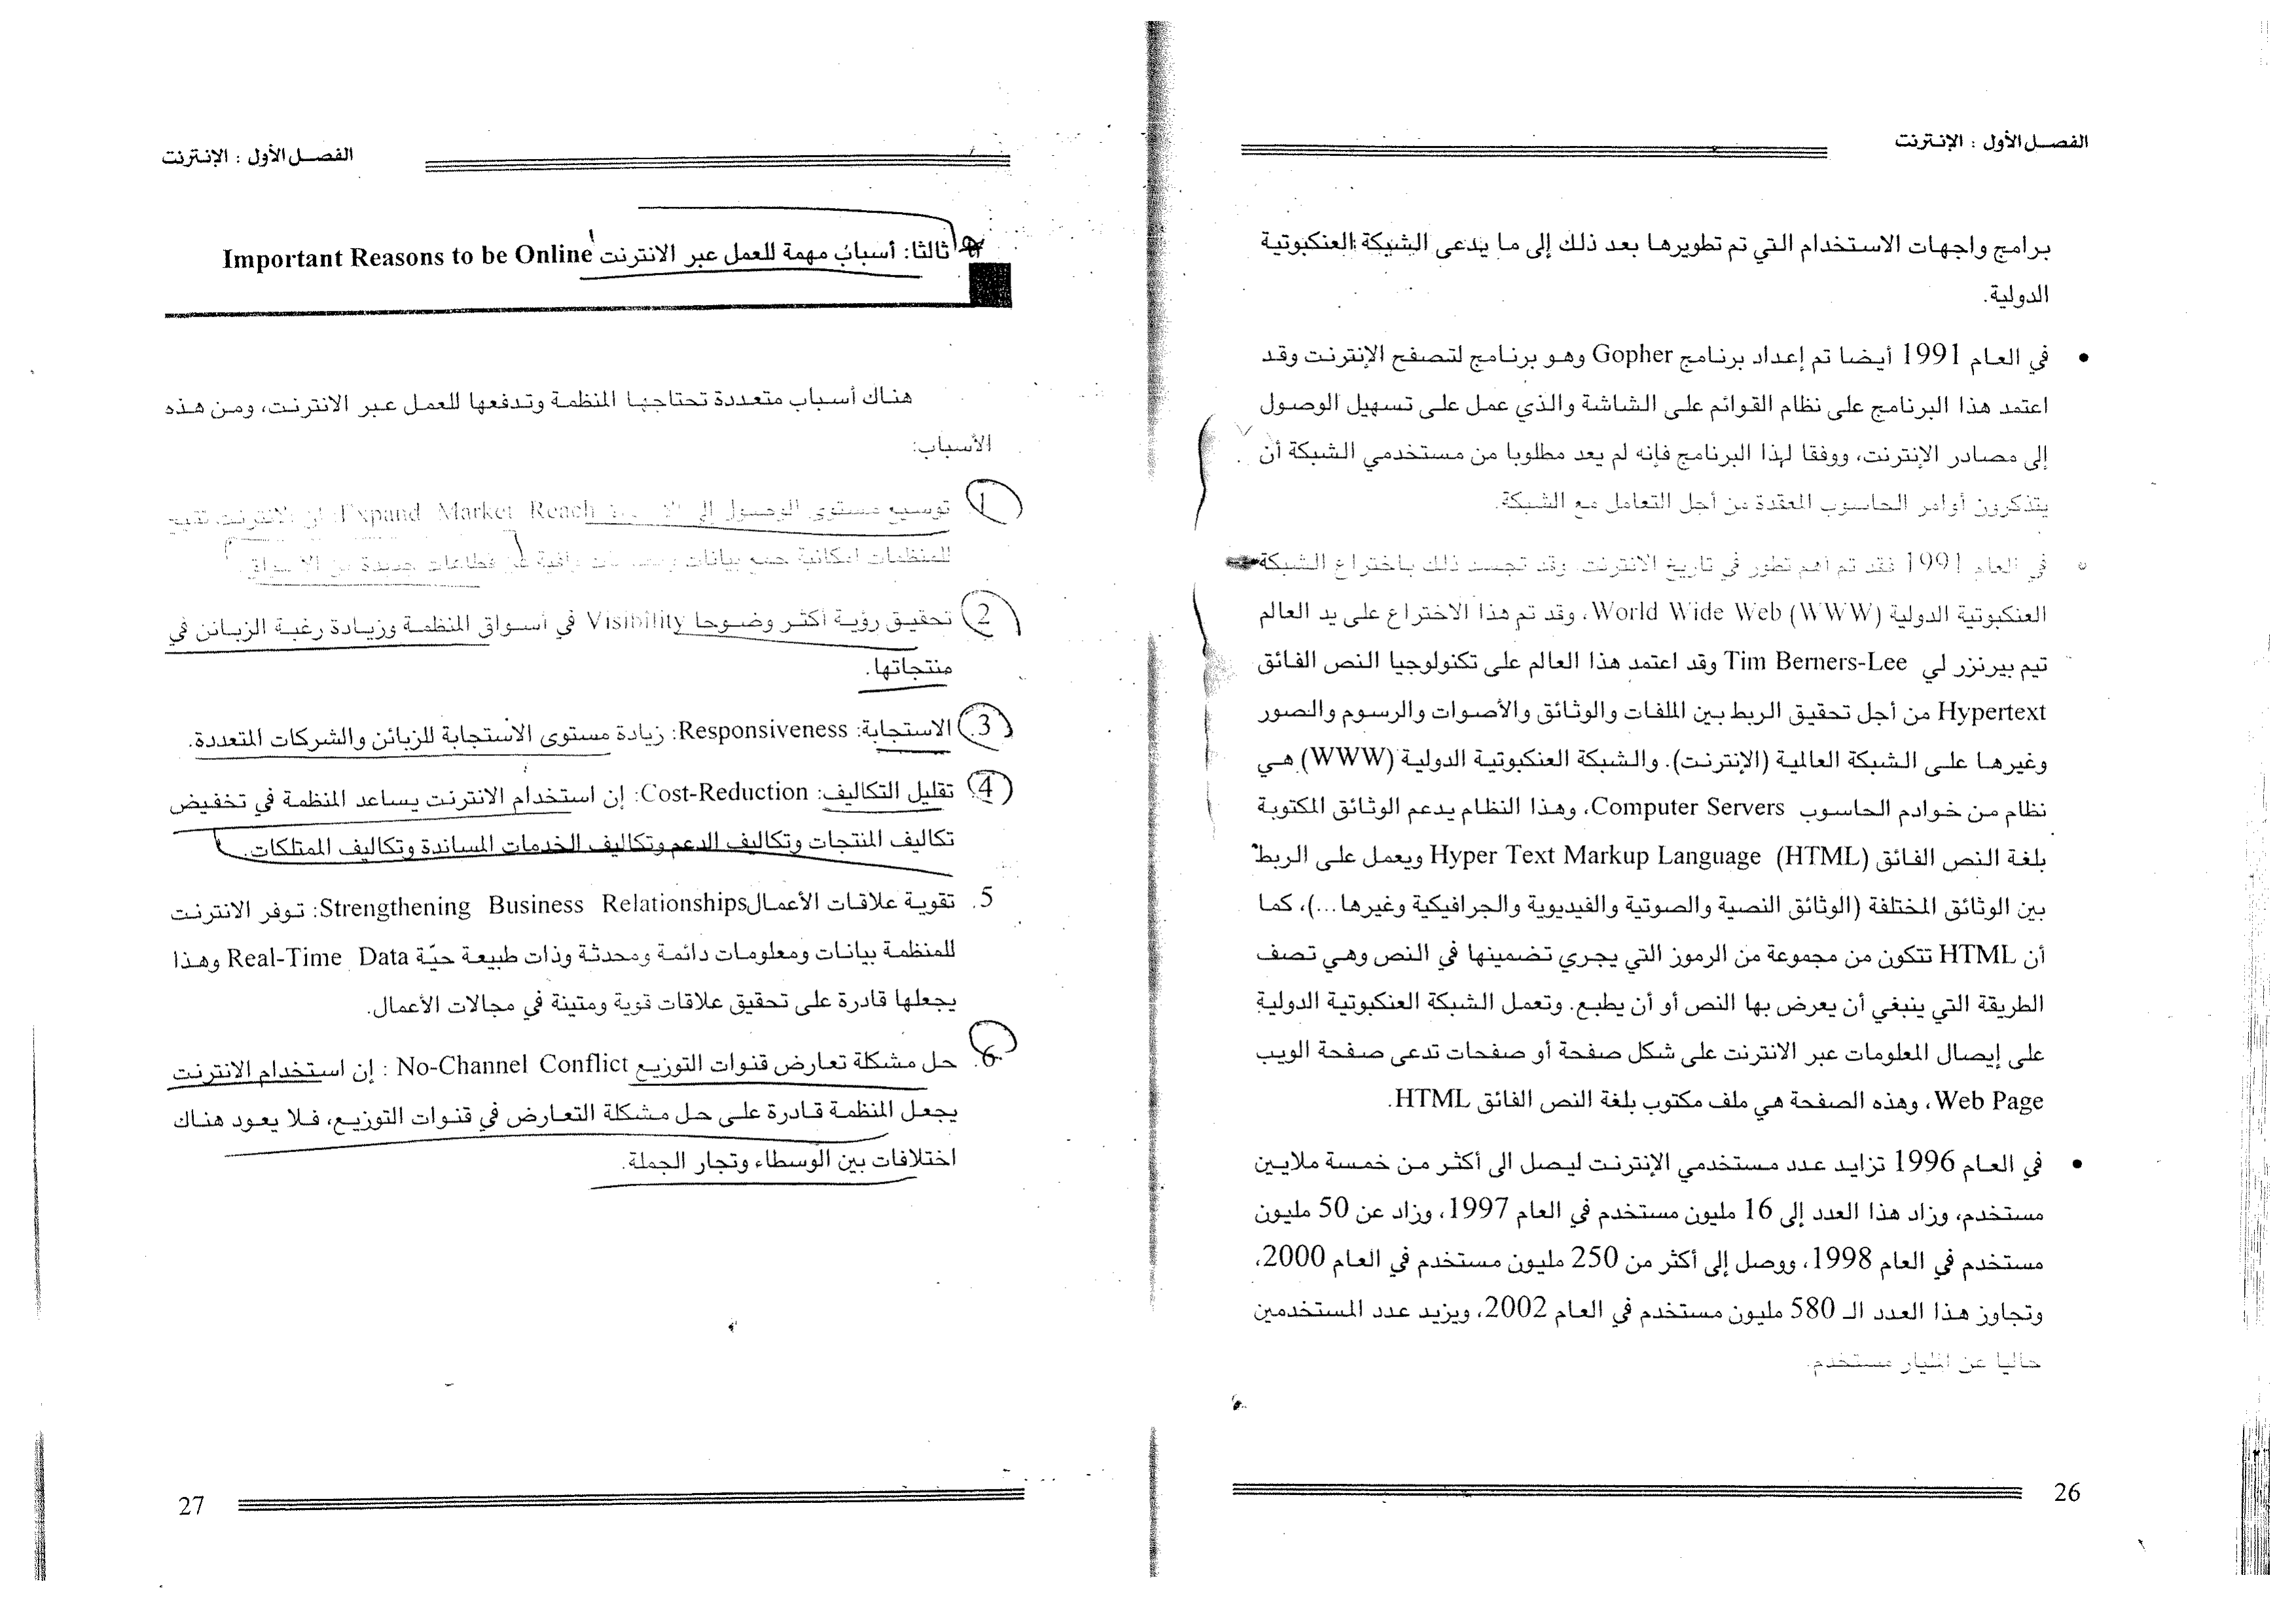 الفصل الأول : الإنترنت
برامج واجهات الاستخدام التي تم تطويرها بعد ذلك إلى ما يدعى الشبكة العنكبوتية
الدولية.
• في العام 1991 أيضا تم إعداد برنامج Gopher وهو برنامج لتصفح الإنترنت وقد
اعتمد هذا البرنامج على نظام القوائم على الشاشة والذي عمل على تسهيل الوصول
إلى مصادر الإنترنت، ووفقا لهذا البرنامج فإنه لم يعد مطلوبا من مستخدمي الشبكة أن
يتذكرون أوامر الحاسوب المعقدة من أجل التعامل مع الشبكة.
• في العام 1991 فقد تم أهم تطور في تاريخ الانترنت. وقد تجسد ذلك باختراع الشبكة
العنكبوتية الدولية World Wide Web (WWW)، وقد تم هذا الاختراع على يد العالم
تيم بيرنزر لي Tim Berners-Lee وقد اعتمد هذا العالم على تكنولوجيا النص الفائق
Hypertext من أجل تحقيق الربط بين الملفات والوثائق والأصوات والرسوم والصور
وغيرها على الشبكة العالمية (الإنترنت). والشبكة العنكبوتية الدولية (WWW) هي
نظام من خوادم الحاسوب Computer Servers، وهذا النظام يدعم الوثائق المكتوبة
بلغة النص الفائق Hyper Text Markup Language (HTML) ويعمل على الربط
بين الوثائق المختلفة (الوثائق النصية والصوتية والفيديوية والجرافيكية وغيرها...)، كما
أن HTML تتكون من مجموعة من الرموز التي يجري تضمينها في النص وهي تصف
الطريقة التي ينبغي أن يعرض بها النص أو أن يطبع. وتعمل الشبكة العنكبوتية الدولية
على إيصال المعلومات عبر الانترنت على شكل صفحة أو صفحات تدعى صفحة الويب
Web Page، وهذه الصفحة هي ملف مكتوب بلغة النص الفائق HTML.
• في العام 1996 تزايد عدد مستخدمي الإنترنت ليصل الى أكثر من خمسة ملايين
مستخدم، وزاد هذا العدد إلى 16 مليون مستخدم في العام 1997، وزاد عن 50 مليون
مستخدم في العام 1998، ووصل إلى أكثر من 250 مليون مستخدم في العام 2000،
وتجاوز هذا العدد الـ 580 مليون مستخدم في العام 2002، ويزيد عدد المستخدمين
حاليا عن المليار مستخدم.
26
الفصل الأول : الإنترنت
ثالثا: أسباب مهمة للعمل عبر الانترنت Important Reasons to be Online
هناك أسباب متعددة تحتاجها المنظمة وتدفعها للعمل عبر الانترنت، ومن هذه
الأسباب:
1 توسيع مستوى الوصول إلى Expand Market Reach: إن الانترنت تتيح
للمنظمات امكانية جمع بيانات وافية عن قطاعات جديدة من الاسواق.
2 تحقيق رؤية أكثر وضوحا Visibility في أسواق المنظمة وزيادة رغبة الزبائن في
منتجاتها.
3. الاستجابة: Responsiveness: زيادة مستوى الاستجابة للزبائن والشركات المتعددة.
4. تقليل التكاليف: Cost-Reduction: إن استخدام الانترنت يساعد المنظمة في تخفيض
تكاليف المنتجات وتكاليف الدعم وتكاليف الخدمات المساندة وتكاليف الممتلكات.
5. تقوية علاقات الأعمال Strengthening Business Relationships: توفر الانترنت
للمنظمة بيانات ومعلومات دائمة ومحدثة وذات طبيعة حيّة Real-Time Data وهذا
يجعلها قادرة على تحقيق علاقات قوية ومتينة في مجالات الأعمال.
6. حل مشكلة تعارض قنوات التوزيع No-Channel Conflict : إن استخدام الانترنت
يجعل المنظمة قادرة على حل مشكلة التعارض في قنوات التوزيع، فلا يعود هناك
اختلافات بين الوسطاء وتجار الجملة.
27